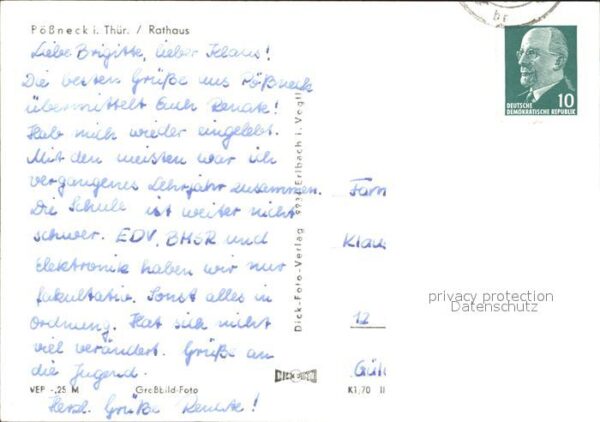 Pößneck i. Thür. / Rathaus
Liebe Brigitte, lieber Klaus!
Die besten Grüße aus Pößneck
übermittelt Euch Renate!
Hab mich wieder eingelebt.
Mit den meisten war ich
vergangenes Lehrjahr zusammen.
Die Schule ist weiter nicht
schwer. EDV, BMSR und
Elektronik haben wir nur
fakultativ. Sonst alles in
Ordnung. Hat sich nicht
viel verändert. Grüße an
die Jugend.
VEP -,25 M Großbild-Foto
Herzl. Grüße Renate!
Dick-Foto-Verlag 9934 Erlbach i. Vogtl.
DICK
K1/70 II
Fam
Klaus
12
10
DEUTSCHE
DEMOKRATISCHE REPUBLIK
privacy protection
Datenschutz